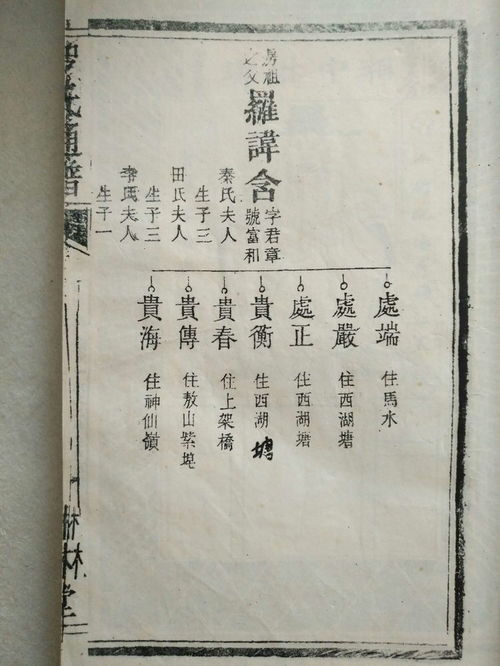 房祖
之父
羅諱含
字君章
號富和
秦氏夫人
生子三
田氏夫人
生子三
李氏夫人
生子一
處端
住馬水
處嚴
住西湖塘
處正
住西湖塘
貴衡
住西湖塘
貴春
住上架橋
貴傳
住敖山紫
貴海
住神仙嶺
羅氏通譜
林堂